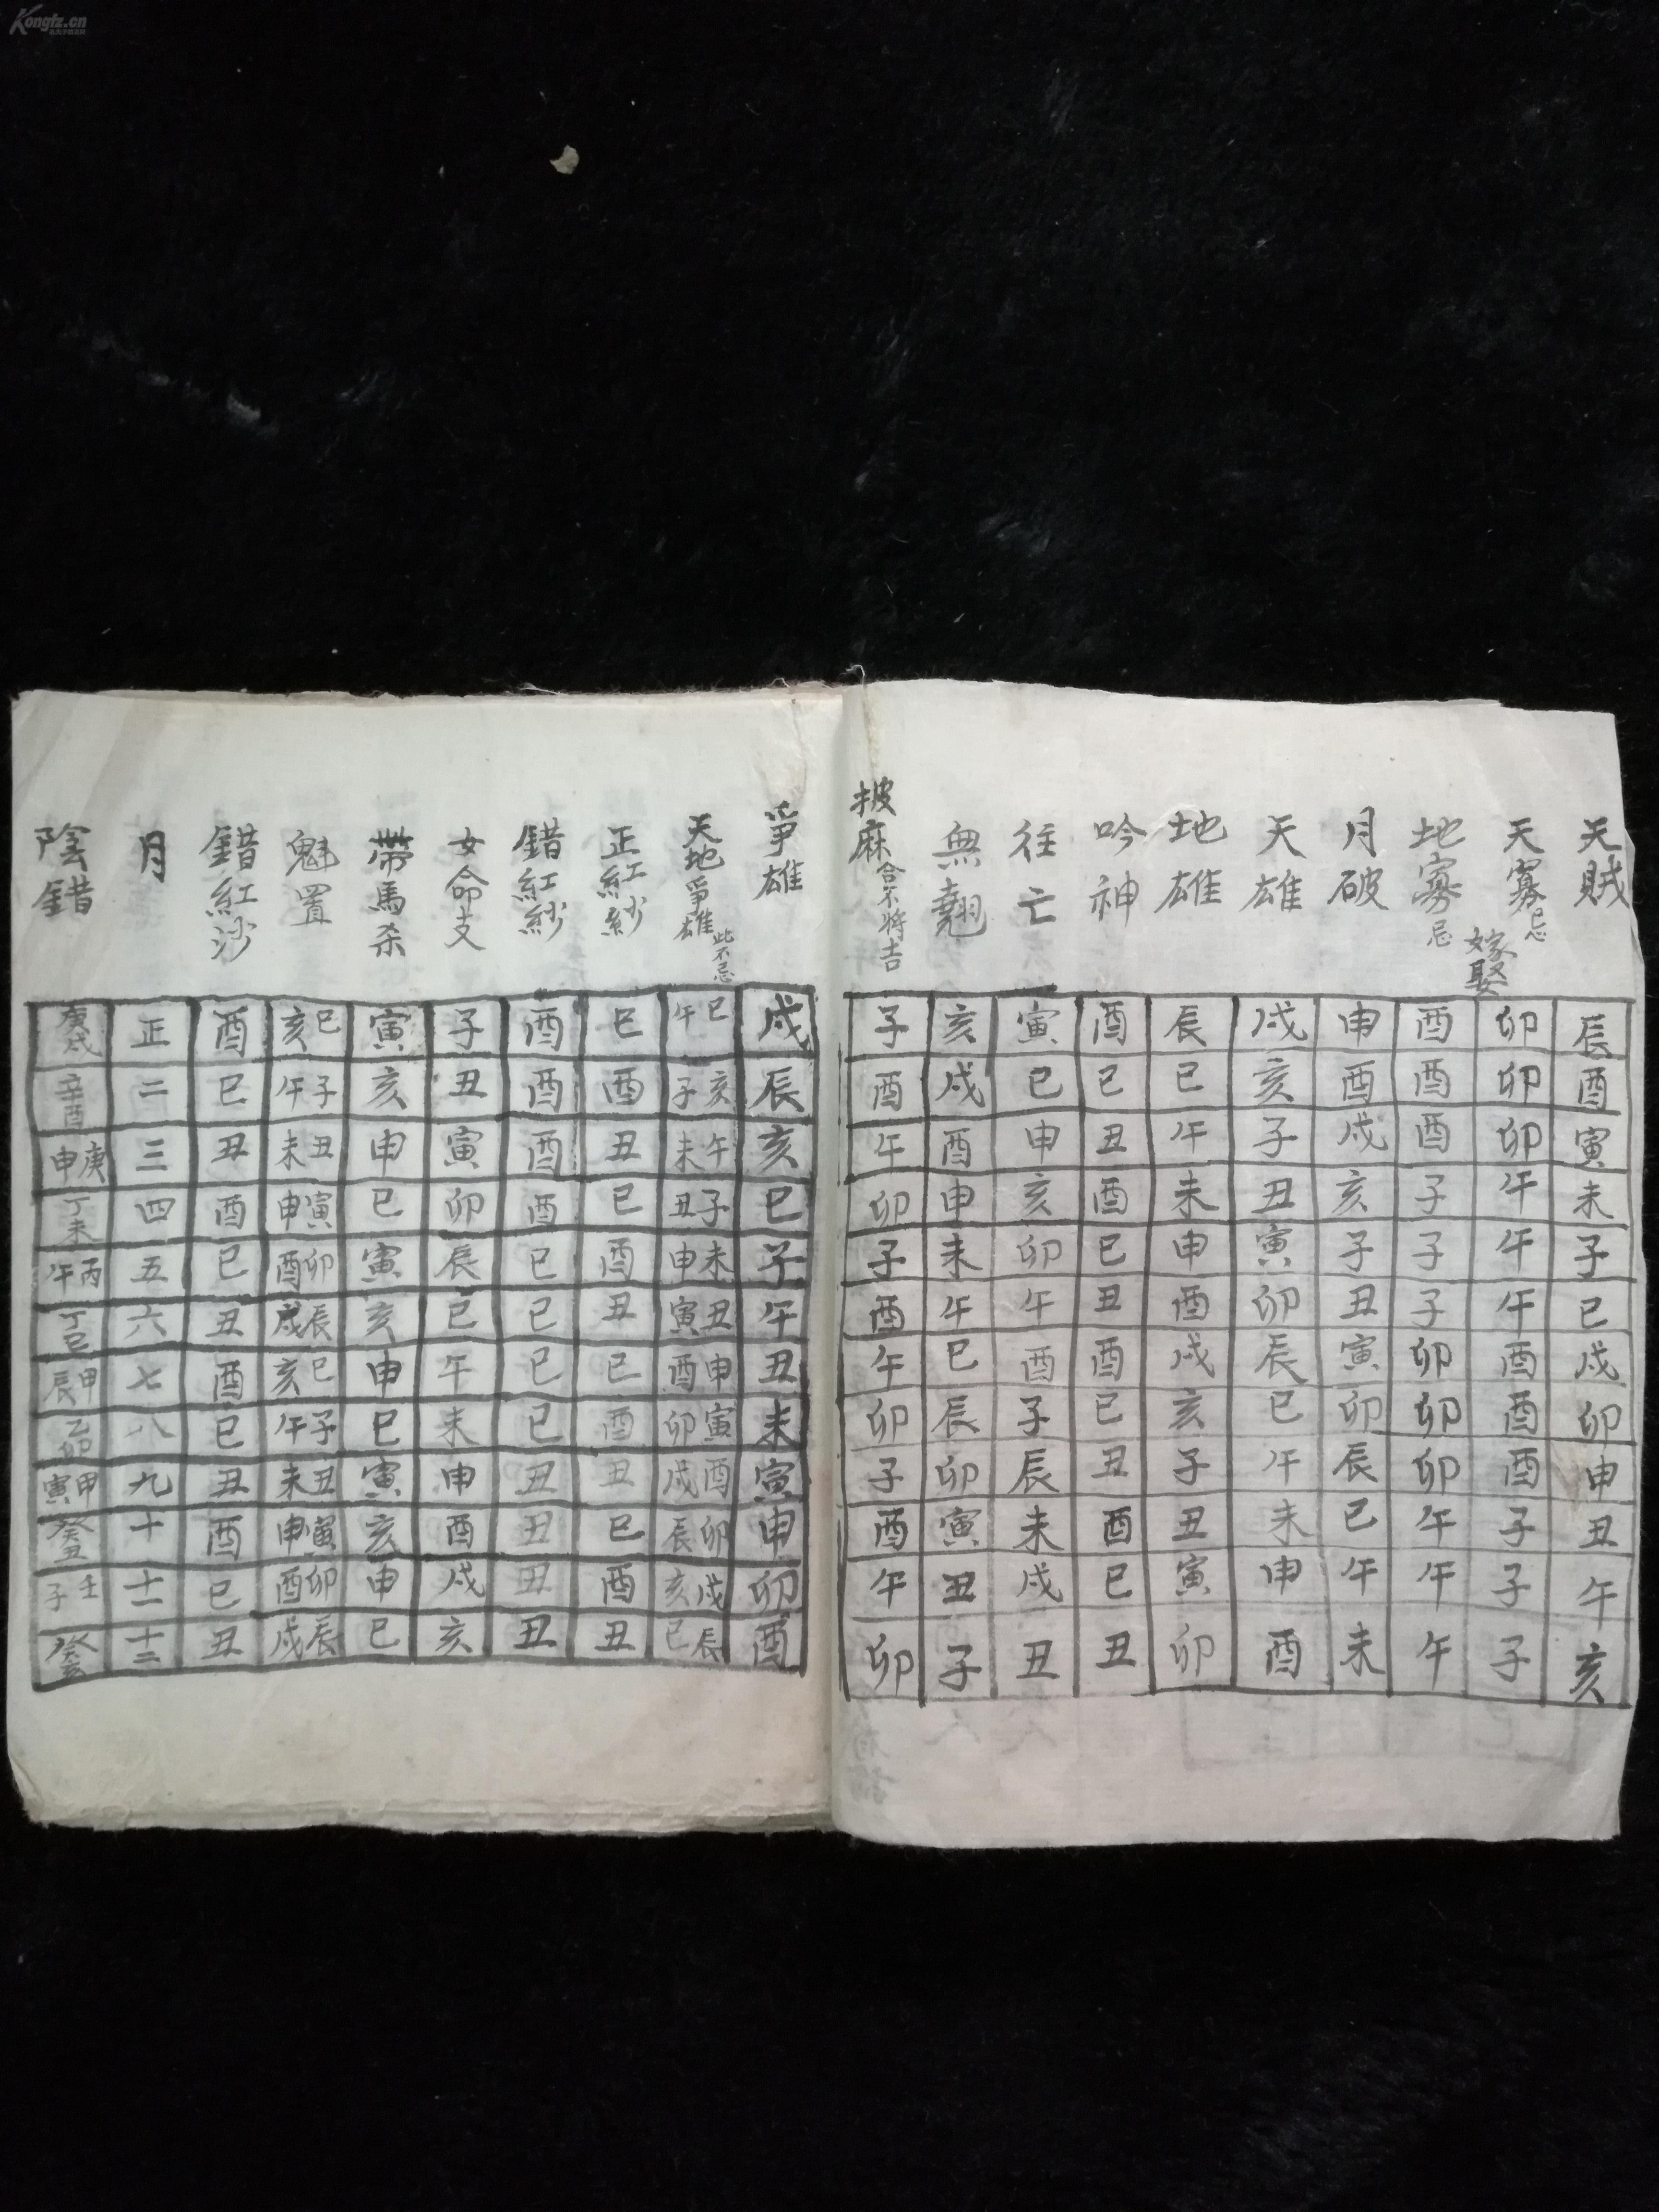 天賊 辰 酉 寅 未 子 巳 戌 卯 申 丑 午 亥
天寡忌 卯 卯 卯 午 午 午 酉 酉 酉 子 子 子
嫁娶
地寡忌 酉 酉 酉 子 子 子 卯 卯 卯 午 午 午
月破 申 酉 戌 亥 子 丑 寅 卯 辰 巳 午 未
天雄 戌 亥 子 丑 寅 卯 辰 巳 午 未 申 酉
地雄 辰 巳 午 未 申 酉 戌 亥 子 丑 寅 卯
吟神 酉 巳 丑 酉 巳 丑 酉 巳 丑 酉 巳 丑
往亡 寅 巳 申 亥 卯 午 酉 子 辰 未 戌 丑
無翹 亥 戌 酉 申 未 午 巳 辰 卯 寅 丑 子
披麻合不将吉 子 酉 午 卯 子 酉 午 卯 子 酉 午 卯
爭雄 戌 辰 亥 巳 子 午 丑 未 寅 申 卯 酉
天地爭雄此不忌 巳午 亥子 午未 子丑 未申 丑寅 申酉 寅卯 酉戌 卯辰 戌亥 辰巳
正紅紗 巳 酉 丑 巳 酉 丑 巳 酉 丑 巳 酉 丑
錯紅紗 酉 酉 酉 酉 巳 巳 巳 巳 丑 丑 丑 丑
女命支 子 丑 寅 卯 辰 巳 午 未 申 酉 戌 亥
帶馬杀 寅 亥 申 巳 寅 亥 申 巳 寅 亥 申 巳
魁置 巳亥 子午 丑未 寅申 卯酉 辰戌 巳亥 子午 丑未 寅申 卯酉 辰戌
錯紅沙 酉 巳 丑 酉 巳 丑 酉 巳 丑 酉 巳 丑
月 正 二 三 四 五 六 七 八 九 十 十一 十二
陰錯 庚戌 辛酉 庚申 丁未 丙午 丁巳 甲辰 乙卯 甲寅 癸丑 壬子 癸亥
Kongfz.cn